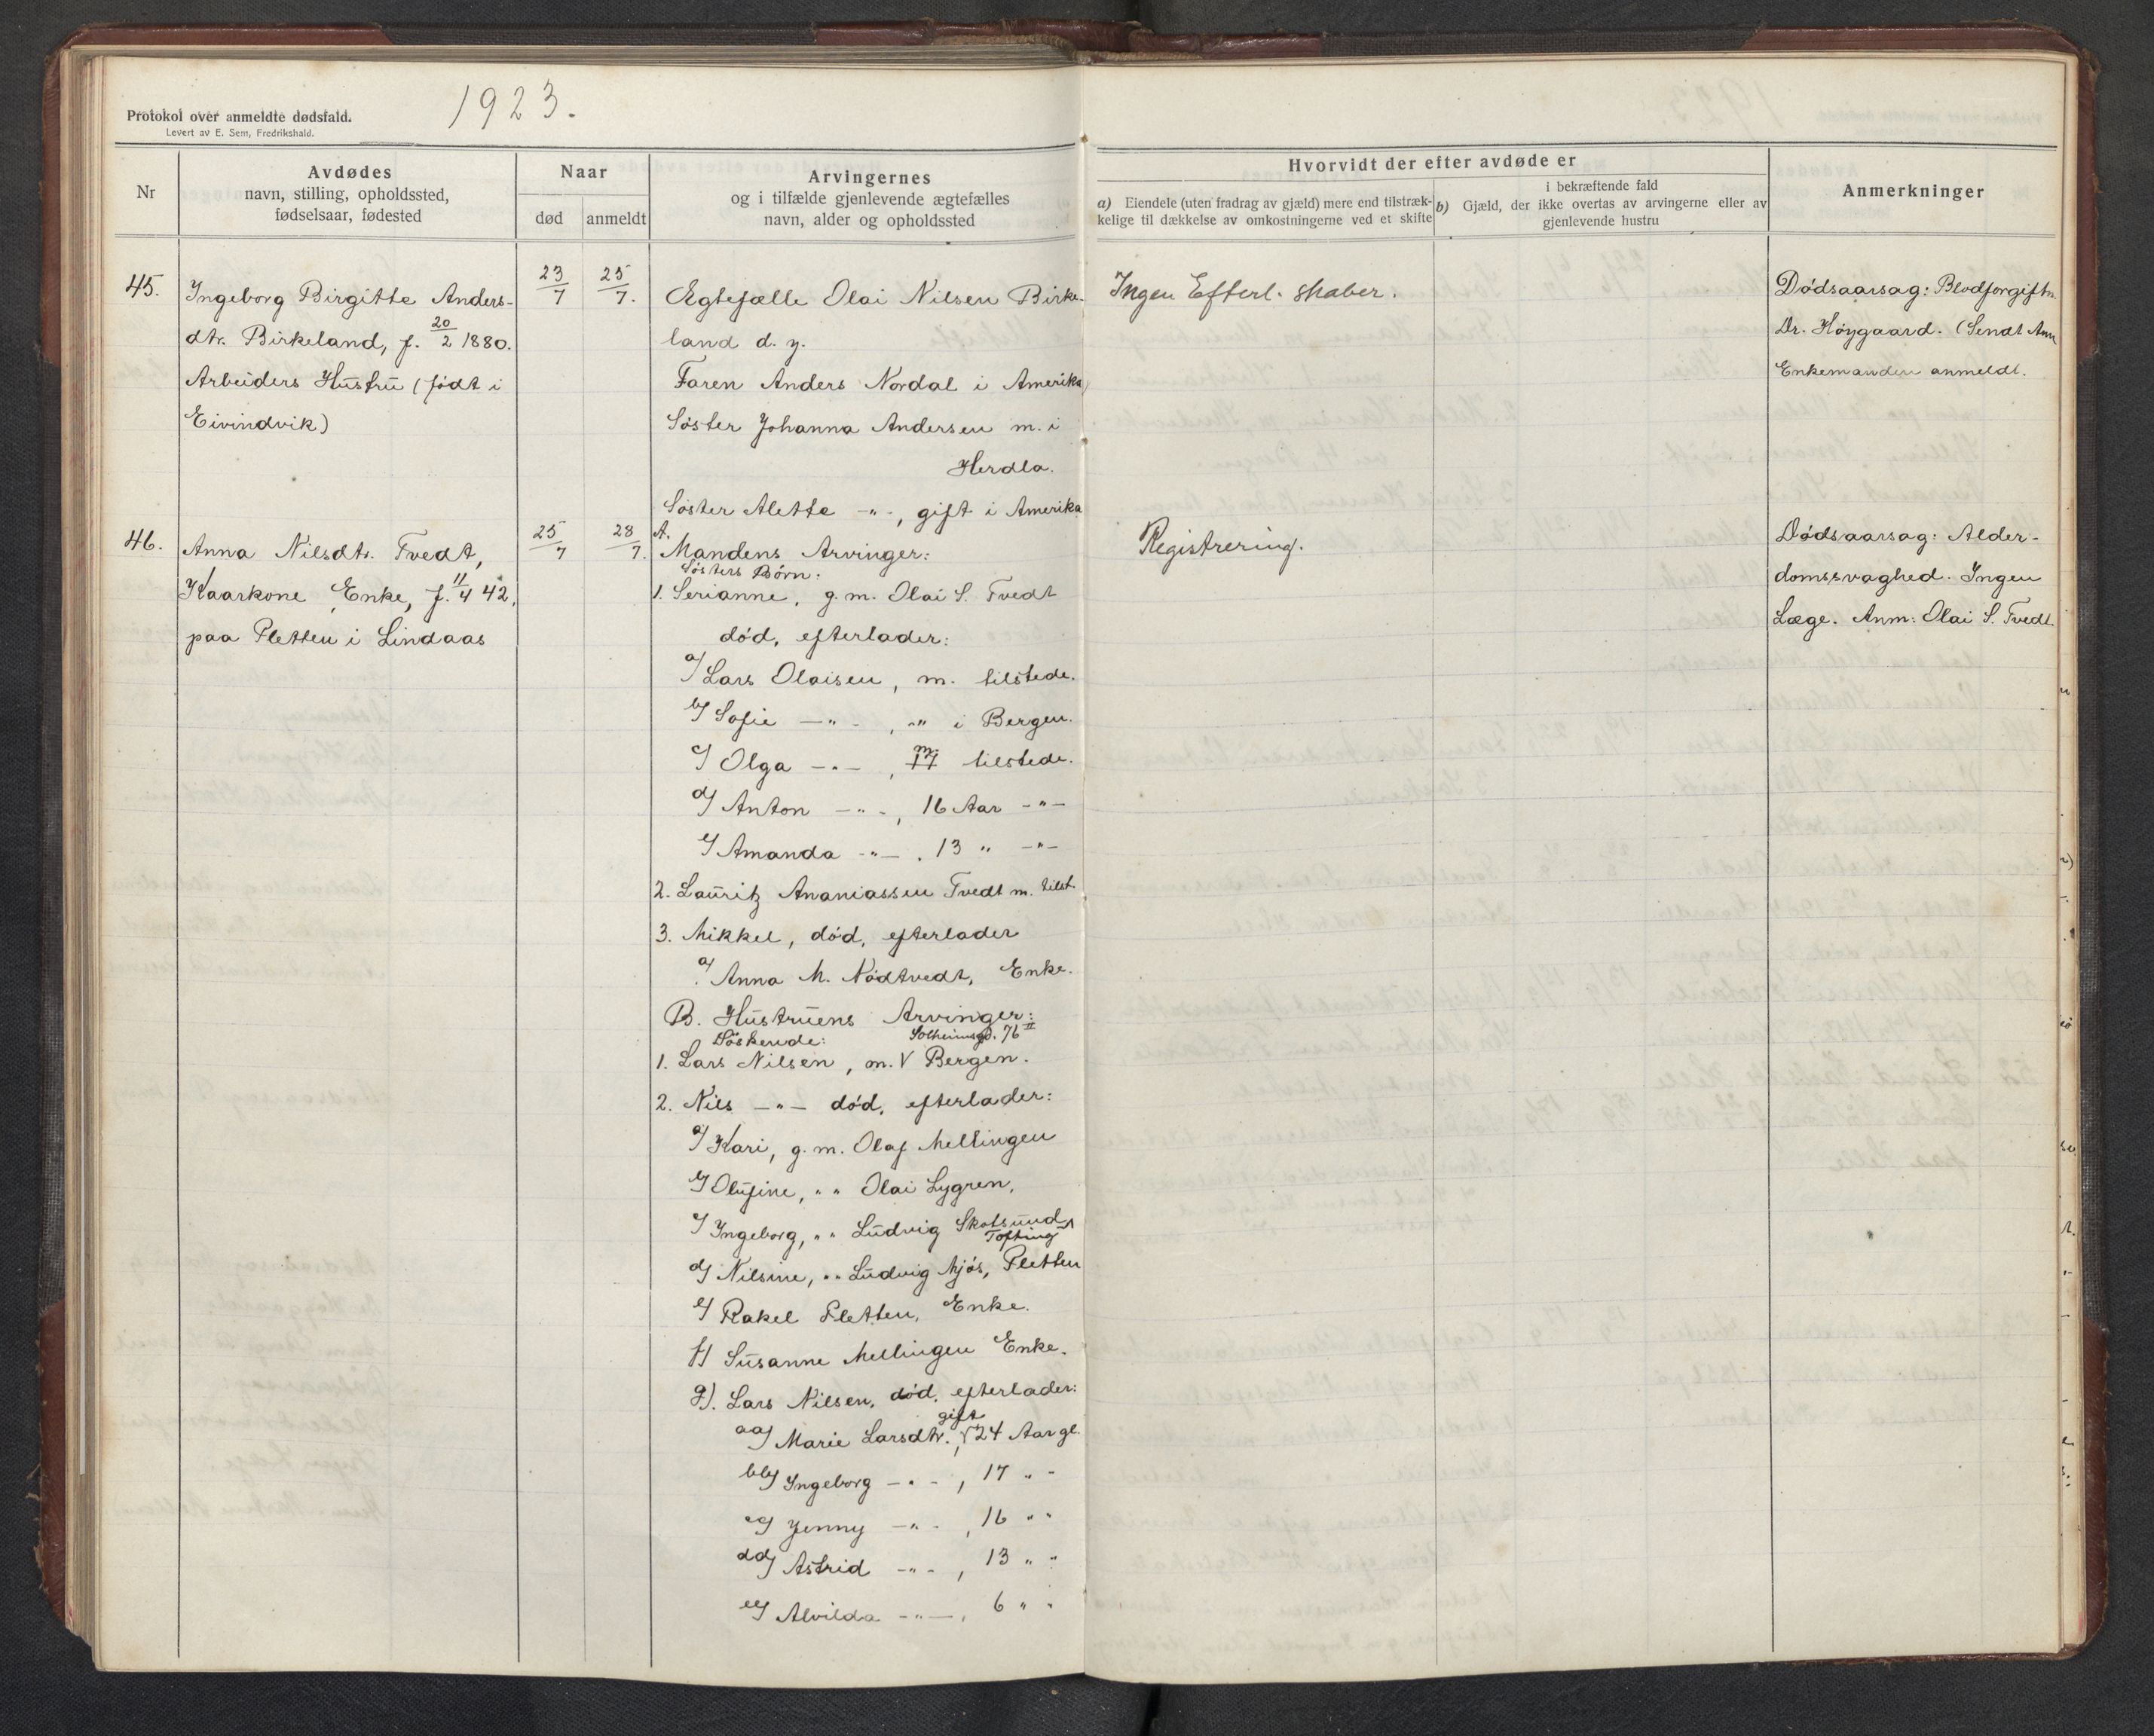 1923.
Protokol over anmeldte dødsfald.
Levert av E. Sem, Fredrikshald.
Nr
Avdødes
navn, stilling, opholdssted,
fødselsaar, fødested
Naar
død
anmeldt
Arvingernes
og i tilfælde gjenlevende ægtefælles
navn, alder og opholdssted
Hvorvidt der efter avdøde er
a) Eiendele (uten fradrag av gjæld) mere end tilstræk-
kelige til dækkelse av omkostningerne ved et skifte
i bekræftende fald
b) Gjæld, der ikke overtas av arvingerne eller av
gjenlevende hustru
Anmerkninger
45.
Ingeborg Birgitte Anders-
dtr. Birkeland, f. 20/2 1880.
Arbeiders Hustru (født i
Eivindvik)
23/7
25/7.
Ægtefælle Olai Nilsen Birke-
land d. y.
Faren Anders Nordal i Amerika
Søster Johanna Andersen m. i
Herdla.
Søster Alette -"-, gift i Amerika
Ingen Efterl.skaber.
Dødsaarsag: Blodforgiftn.
Dr. Høygaard. (Sendt Anm
Enkemanden anmeldt.
46.
Anna Nilsdtr. Tvedt,
Kaarkone, Enke, f. 11/4 42,
paa Fletten i Lindaas
25/7
28/7.
A.
Mandens Arvinger:
Søsters Børn:
1. Serianne, g.m. Olai S. Tvedt
død, efterlader:
a/ Lars Olaisen, m. tilstede.
b/ Sofie -"-, -" i Bergen.
c/ Olga -"-, m. 17 tilstede.
d/ Anton -"-, 16 Aar -"-
e/ Amanda -"-, 13 " -"-
2. Lauritz Ananiassen Tvedt m. tilst.
3. Mikkel, død, efterlader
a/ Anna M. Nødtvedt, Enke.
B. Hustruens Arvinger:
Søskende: Solheimsgd. 76 II
1. Lars Nilsen, m. V Bergen.
2. Nils -"- død, efterlader:
a/ Kari, g.m. Olaf Mellingen
b/ Olufine, " " Olai Lygren,
c/ Ingeborg, " " Ludvig Skotsund
Tofting
d/ Nilsine, " " Ludvig Mjøs, Fletten
e/ Rakel Fletten, Enke.
f/ Susanne Mellingen Enke.
g). Lars Nilsen, død, efterlader:
gift
aa/ Marie Larsdtr., V 24 Aar gl.
bb/ Ingeborg -"-, 17 " -
cc/ Jenny -"-, 16 " "
dd/ Astrid -"-, 13 " "
ee/ Alvilda -"-, 6 " "
Registrering.
Dødsaarsag: Alder-
domssvaghed. Ingen
Læge. Anm: Olai S. Tvedt